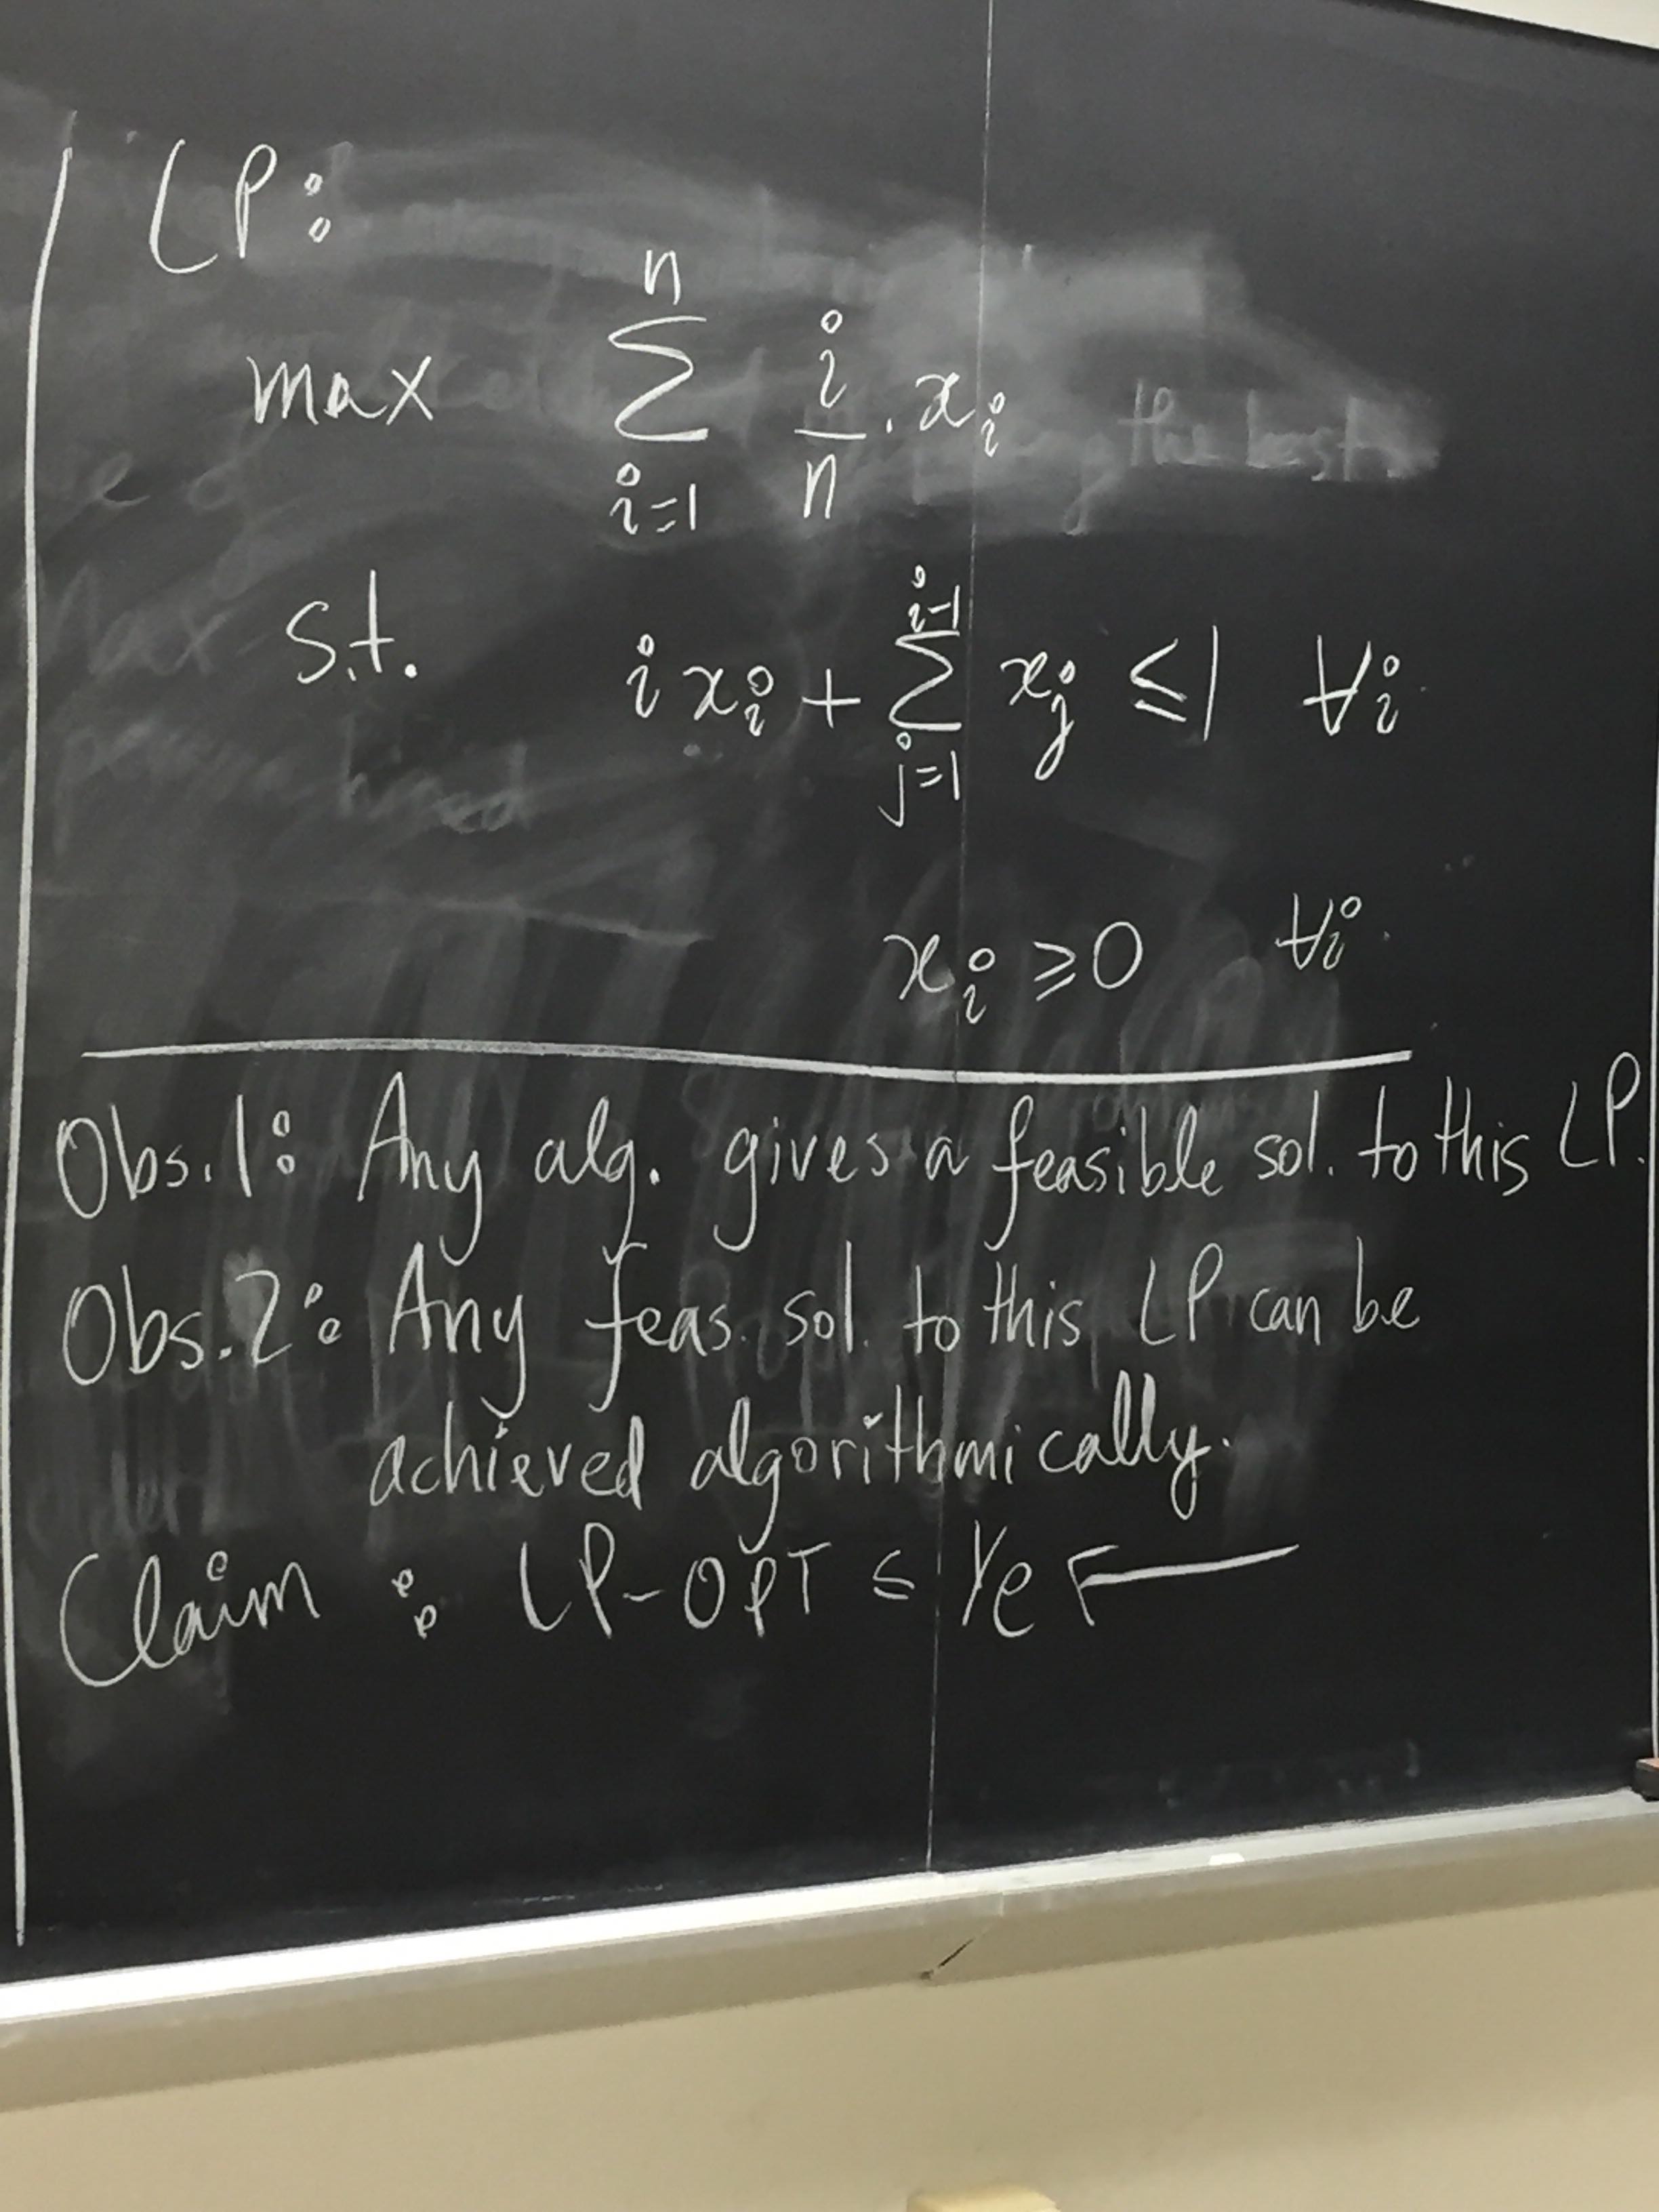 LP:
max ∑_{i=1}^{n} i/n · x_i
s.t. i x_i + ∑_{j=1}^{i-1} x_j ≤ 1 ∀i
x_i ≥ 0 ∀i
Obs.1: Any alg. gives a feasible sol. to this LP.
Obs.2: Any feas. sol. to this LP can be
achieved algorithmically.
Claim: LP-OPT ≤ 1/e ←